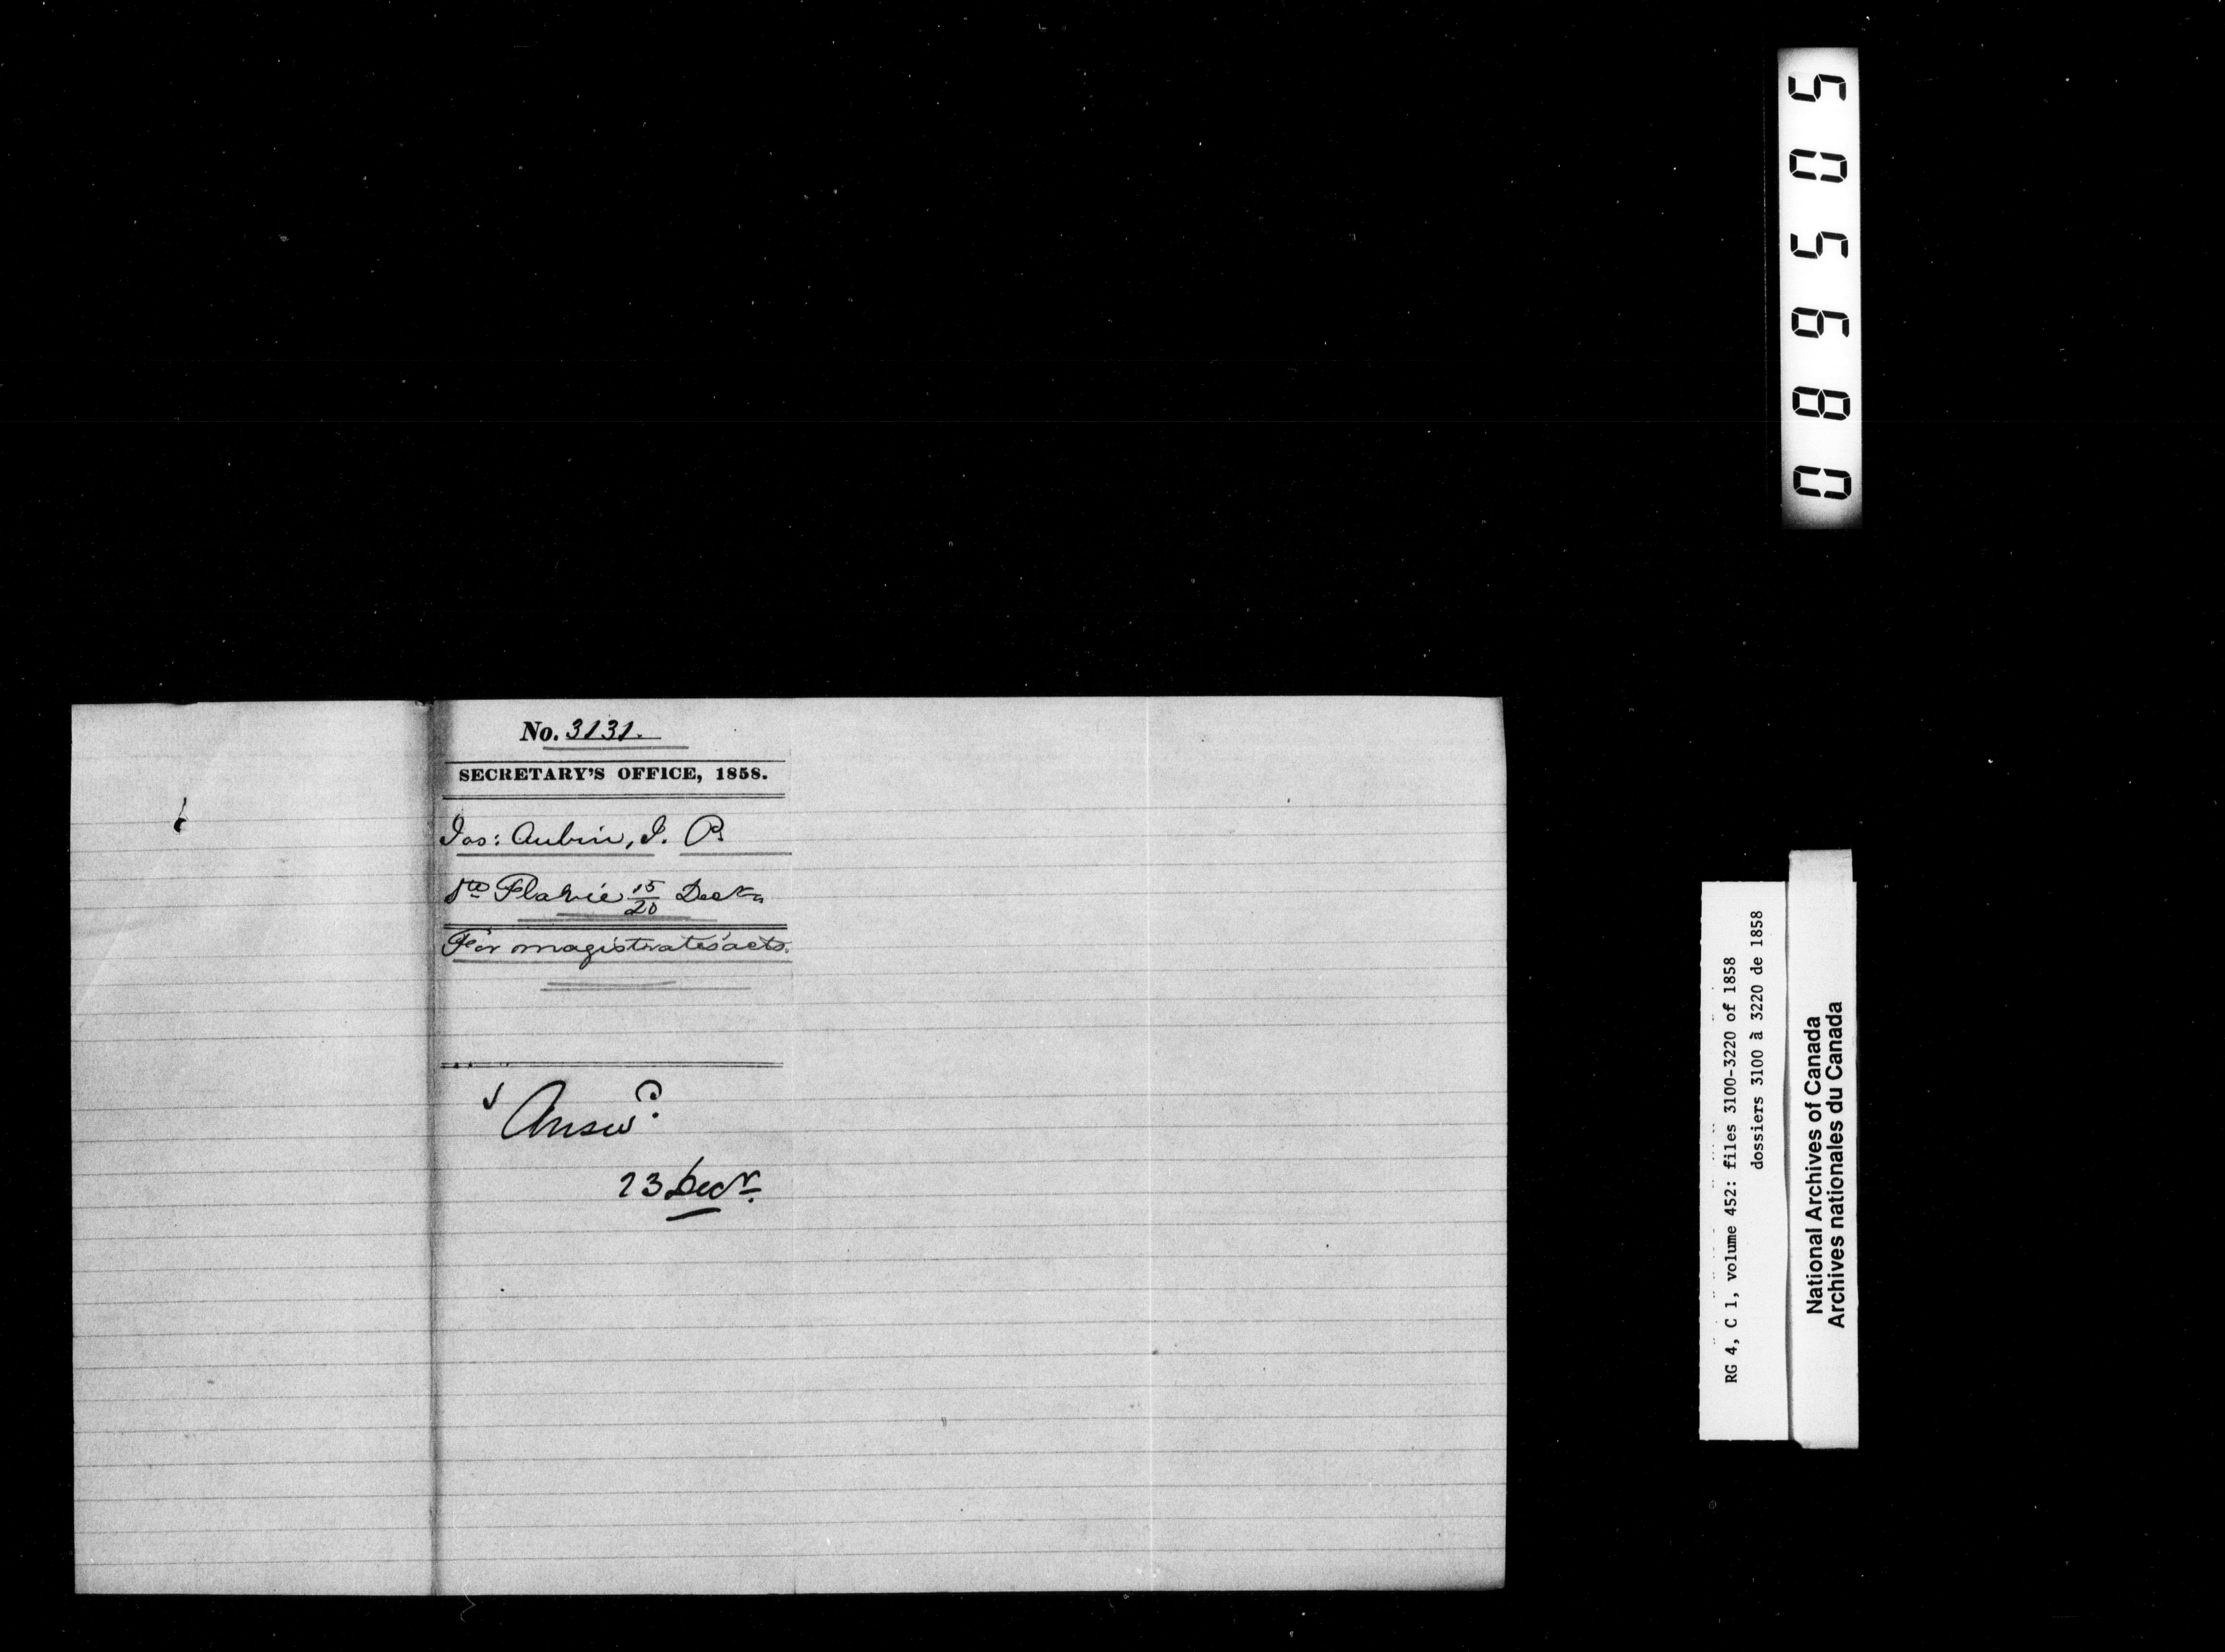 No. 3131.
SECRETARY'S OFFICE, 1858.
Jos: Aubin, J. P.
Ste Flavie 15/20 Decr
For magistrates' acts.
Answd.
23 Decr.
089505
RG 4, C 1, volume 452: files 3100-3220 of 1858
dossiers 3100 à 3220 de 1858
National Archives of Canada
Archives nationales du Canada